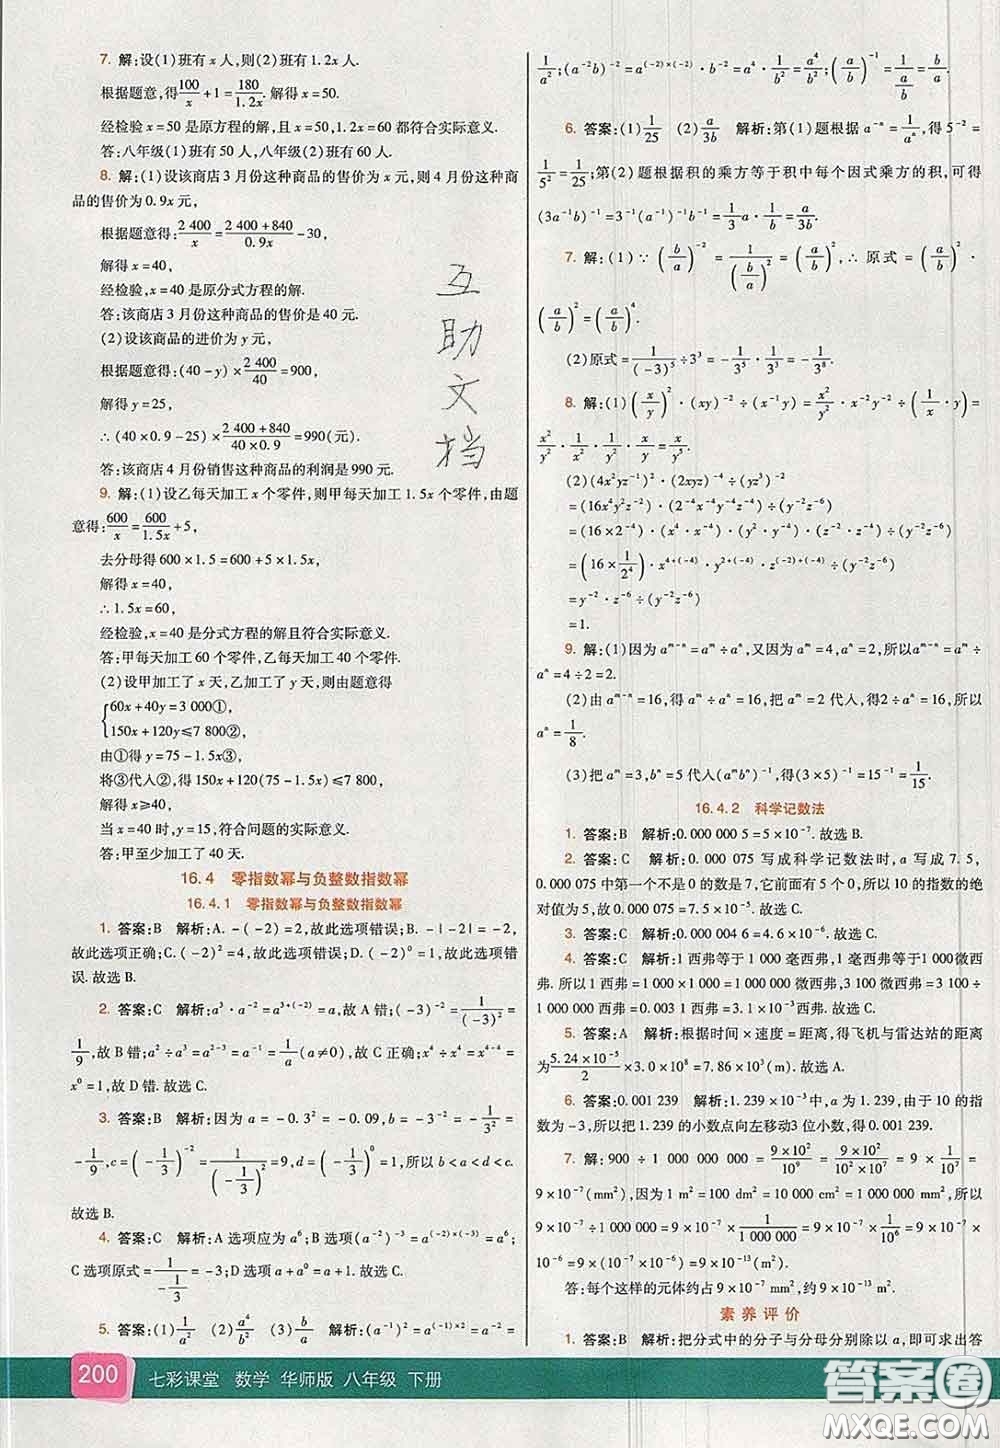 7. 解:设(1)班有 x 人,则(2)班有 1.2x 人.
根据题意,得100/x+1=180/1.2x. 解得 x=50.
经检验 x=50 是原方程的解,且 x=50,1.2x=60 都符合实际意义.
答:八年级(1)班有 50 人,八年级(2)班有 60 人.
8. 解:(1)设该商店 3 月份这种商品的售价为 x 元,则 4 月份这种商
品的售价为 0.9x 元,
根据题意得:2 400/x=(2 400+840)/0.9x-30,
解得 x=40.
经检验,x=40 是原分式方程的解.
答:该商店 3 月份这种商品的售价是 40 元.
(2)设该商品的进价为 y 元,
根据题意得:(40-y)×2 400/40=900,
解得 y=25,
∴(40×0.9-25)×(2 400+840)/(40×0.9)=990(元).
答:该商店 4 月份销售这种商品的利润是 990 元.
9. 解:(1)设乙每天加工 x 个零件,则甲每天加工 1.5x 个零件,由题
意得:600/x=600/1.5x+5,
去分母得 600×1.5=600+5×1.5x,
解得 x=40,
∴1.5x=60,
经检验,x=40 是分式方程的解且符合实际意义.
答:甲每天加工 60 个零件,乙每天加工 40 个零件.
(2)设甲加工了 x 天,乙加工了 y 天,则由题意得
{60x+40y=3 000①,
150x+120y≤7 800②,
由①得 y=75-1.5x③,
将③代入②得 150x+120(75-1.5x)≤7 800,
解得 x≥40,
当 x=40 时,y=15,符合问题的实际意义.
答:甲至少加工了 40 天.
16.4 零指数幂与负整数指数幂
16.4.1 零指数幂与负整数指数幂
1. 答案:B 解析:A. -(-2)=2,故此选项错误;B. -|-2|=-2,
故此选项正确;C. (-2)²=4,故此选项错误;D. (-2)⁰=1,故此选项错
误. 故选 B.
2. 答案:C 解析:a³·a⁻²=a³⁺⁽⁻²⁾=a,故 A 错;(-3)⁻²=1/(-3)²=
1/9,故 B 错;a²÷a³=a²⁻³=a⁻¹=1/a(a≠0),故 C 正确;x⁴÷x⁴=x⁴⁻⁴=
x⁰=1,故 D 错. 故选 C.
3. 答案:B 解析:因为 a=-0.3²=-0.09,b=-3⁻²=-1/3²=
-1/9,c=(-1/3)⁻²=1/(-1/3)²=9,d=(-1/3)⁰=1,所以 b<a<d<c.
故选 B.
4. 答案:C 解析:A 选项应为 a⁶;B 选项(a⁻²)⁻³=a⁽⁻²⁾ˣ⁽⁻³⁾=a⁶;
C 选项原式=1/(-1/3)=-3;D 选项 a+a⁰=a+1. 故选 C.
5. 答案:(1)1/a² (2)a⁴/b² (3)b/a 解析:a³÷a⁵=a³⁻⁵=a⁻²=
1/a²;(a⁻²b)⁻²=a⁽⁻²⁾ˣ⁽⁻²⁾·b⁻²=a⁴·1/b²=a⁴/b²;(a/b)⁻¹=1/(a/b)=b/a.
6. 答案:(1)1/25 (2)a/3b 解析:第(1)题根据 a⁻ⁿ=1/aⁿ,得 5⁻²=
1/5²=1/25;第(2)题根据积的乘方等于积中每个因式乘方的积,可得
(3a⁻¹b)⁻¹=3⁻¹(a⁻¹)⁻¹b⁻¹=1/3·a·1/b=a/3b.
7. 解:(1)∵(b/a)⁻²=1/(b/a)²=(a/b)²,∴原式=(a/b)²·
(a/b)²=(a/b)⁴.
(2)原式=1/(-3)⁵÷3³=-1/3⁵·1/3³=-1/3⁸.
8. 解:(1)(x/y)²·(xy)⁻²÷(x⁻¹y)=x²/y²·x⁻²y⁻²÷(1/x·y)=
x²/y²·1/x²·1/y²·x/y=x/y⁵.
(2)(4x²yz⁻¹)²·(2xyz)⁻⁴÷(yz³)⁻²
=(16x⁴y²z⁻²)·(2⁻⁴x⁻⁴y⁻⁴z⁻⁴)÷(y⁻²z⁻⁶)
=(16×2⁻⁴)·(x⁴·x⁻⁴)·(y²·y⁻⁴)·(z⁻²·z⁻⁴)÷(y⁻²z⁻⁶)
=(16×1/2⁴)·x⁴⁺⁽⁻⁴⁾·y²⁺⁽⁻⁴⁾·z⁻²⁺⁽⁻⁴⁾÷(y⁻²z⁻⁶)
=y⁻²z⁻⁶÷(y⁻²z⁻⁶)
=1.
9. 解:(1)因为 aᵐ⁻ⁿ=aᵐ÷aⁿ,又因为 aᵐ=4,aⁿ=2,所以 aᵐ⁻ⁿ
=4÷2=2.
(2)由 aᵐ⁻ⁿ=16,得 aᵐ÷aⁿ=16,把 aᵐ=2 代入,得2÷aⁿ=16,所以
aⁿ=1/8.
(3)把 aᵐ=3,bⁿ=5 代入(aᵐbⁿ)⁻¹,得(3×5)⁻¹=15⁻¹=1/15.
16.4.2 科学记数法
1. 答案:B 解析:0.000 000 5=5×10⁻⁷. 故选 B.
2. 答案:C 解析:0.000 075 写成科学记数法时,a 写成 7.5,
0.000 075 中第一个不是 0 的数是 7,它前面有 5 个 0,所以 10 的指数的绝
对值为 5,故 0.000 075=7.5×10⁻⁵. 故选 C.
3. 答案:C 解析:0.000 004 6=4.6×10⁻⁶. 故选 C.
4. 答案:C 解析:1 西弗等于 1 000 毫西弗,1 毫西弗等于 1 000微西
弗. 所以 1 西弗=1 000×1 000=1 000 000 微西弗,3 100 微西弗=3 100÷
1 000 000西弗=0.003 1 西弗=3.1×10⁻³西弗. 故选 C.
5. 答案:A 解析:根据时间×速度=距离,得飞机与雷达站的距离
为5.24×10⁻⁵/2×3.0×10⁸=7.86×10³(m). 故选 A.
6. 答案:0.001 239 解析:1.239×10⁻³中,a 为 1.239,由于 10 的指
数为-3,所以把 1.239 的小数点向左移动3 位小数,得 0.001 239.
7. 解:900÷1 000 000 000=9×10²/10⁹=9×10²/10⁹=9×1/10⁷=
9×10⁻⁷(mm²),因为 1 m²=100 dm²=10 000 cm²=1 000 000 mm²,所以
9×10⁻⁷÷1 000 000=9×10⁻⁷×1/1 000 000=9×10⁻⁷×1/10⁶=9×10⁻⁷×
10⁻⁶=9×10⁻⁷⁻⁶=9×10⁻¹³(m²).
答:每个这样的元体约占 9×10⁻⁷ mm²,约 9×10⁻¹³ m².
素养评价
1. 答案:B 解析:把分式中的分子与分母分别除以 a,即可求出答
互
助
文
档
200 七彩课堂 数学 华师版 八年级 下册
答案圈
MXQE.COM